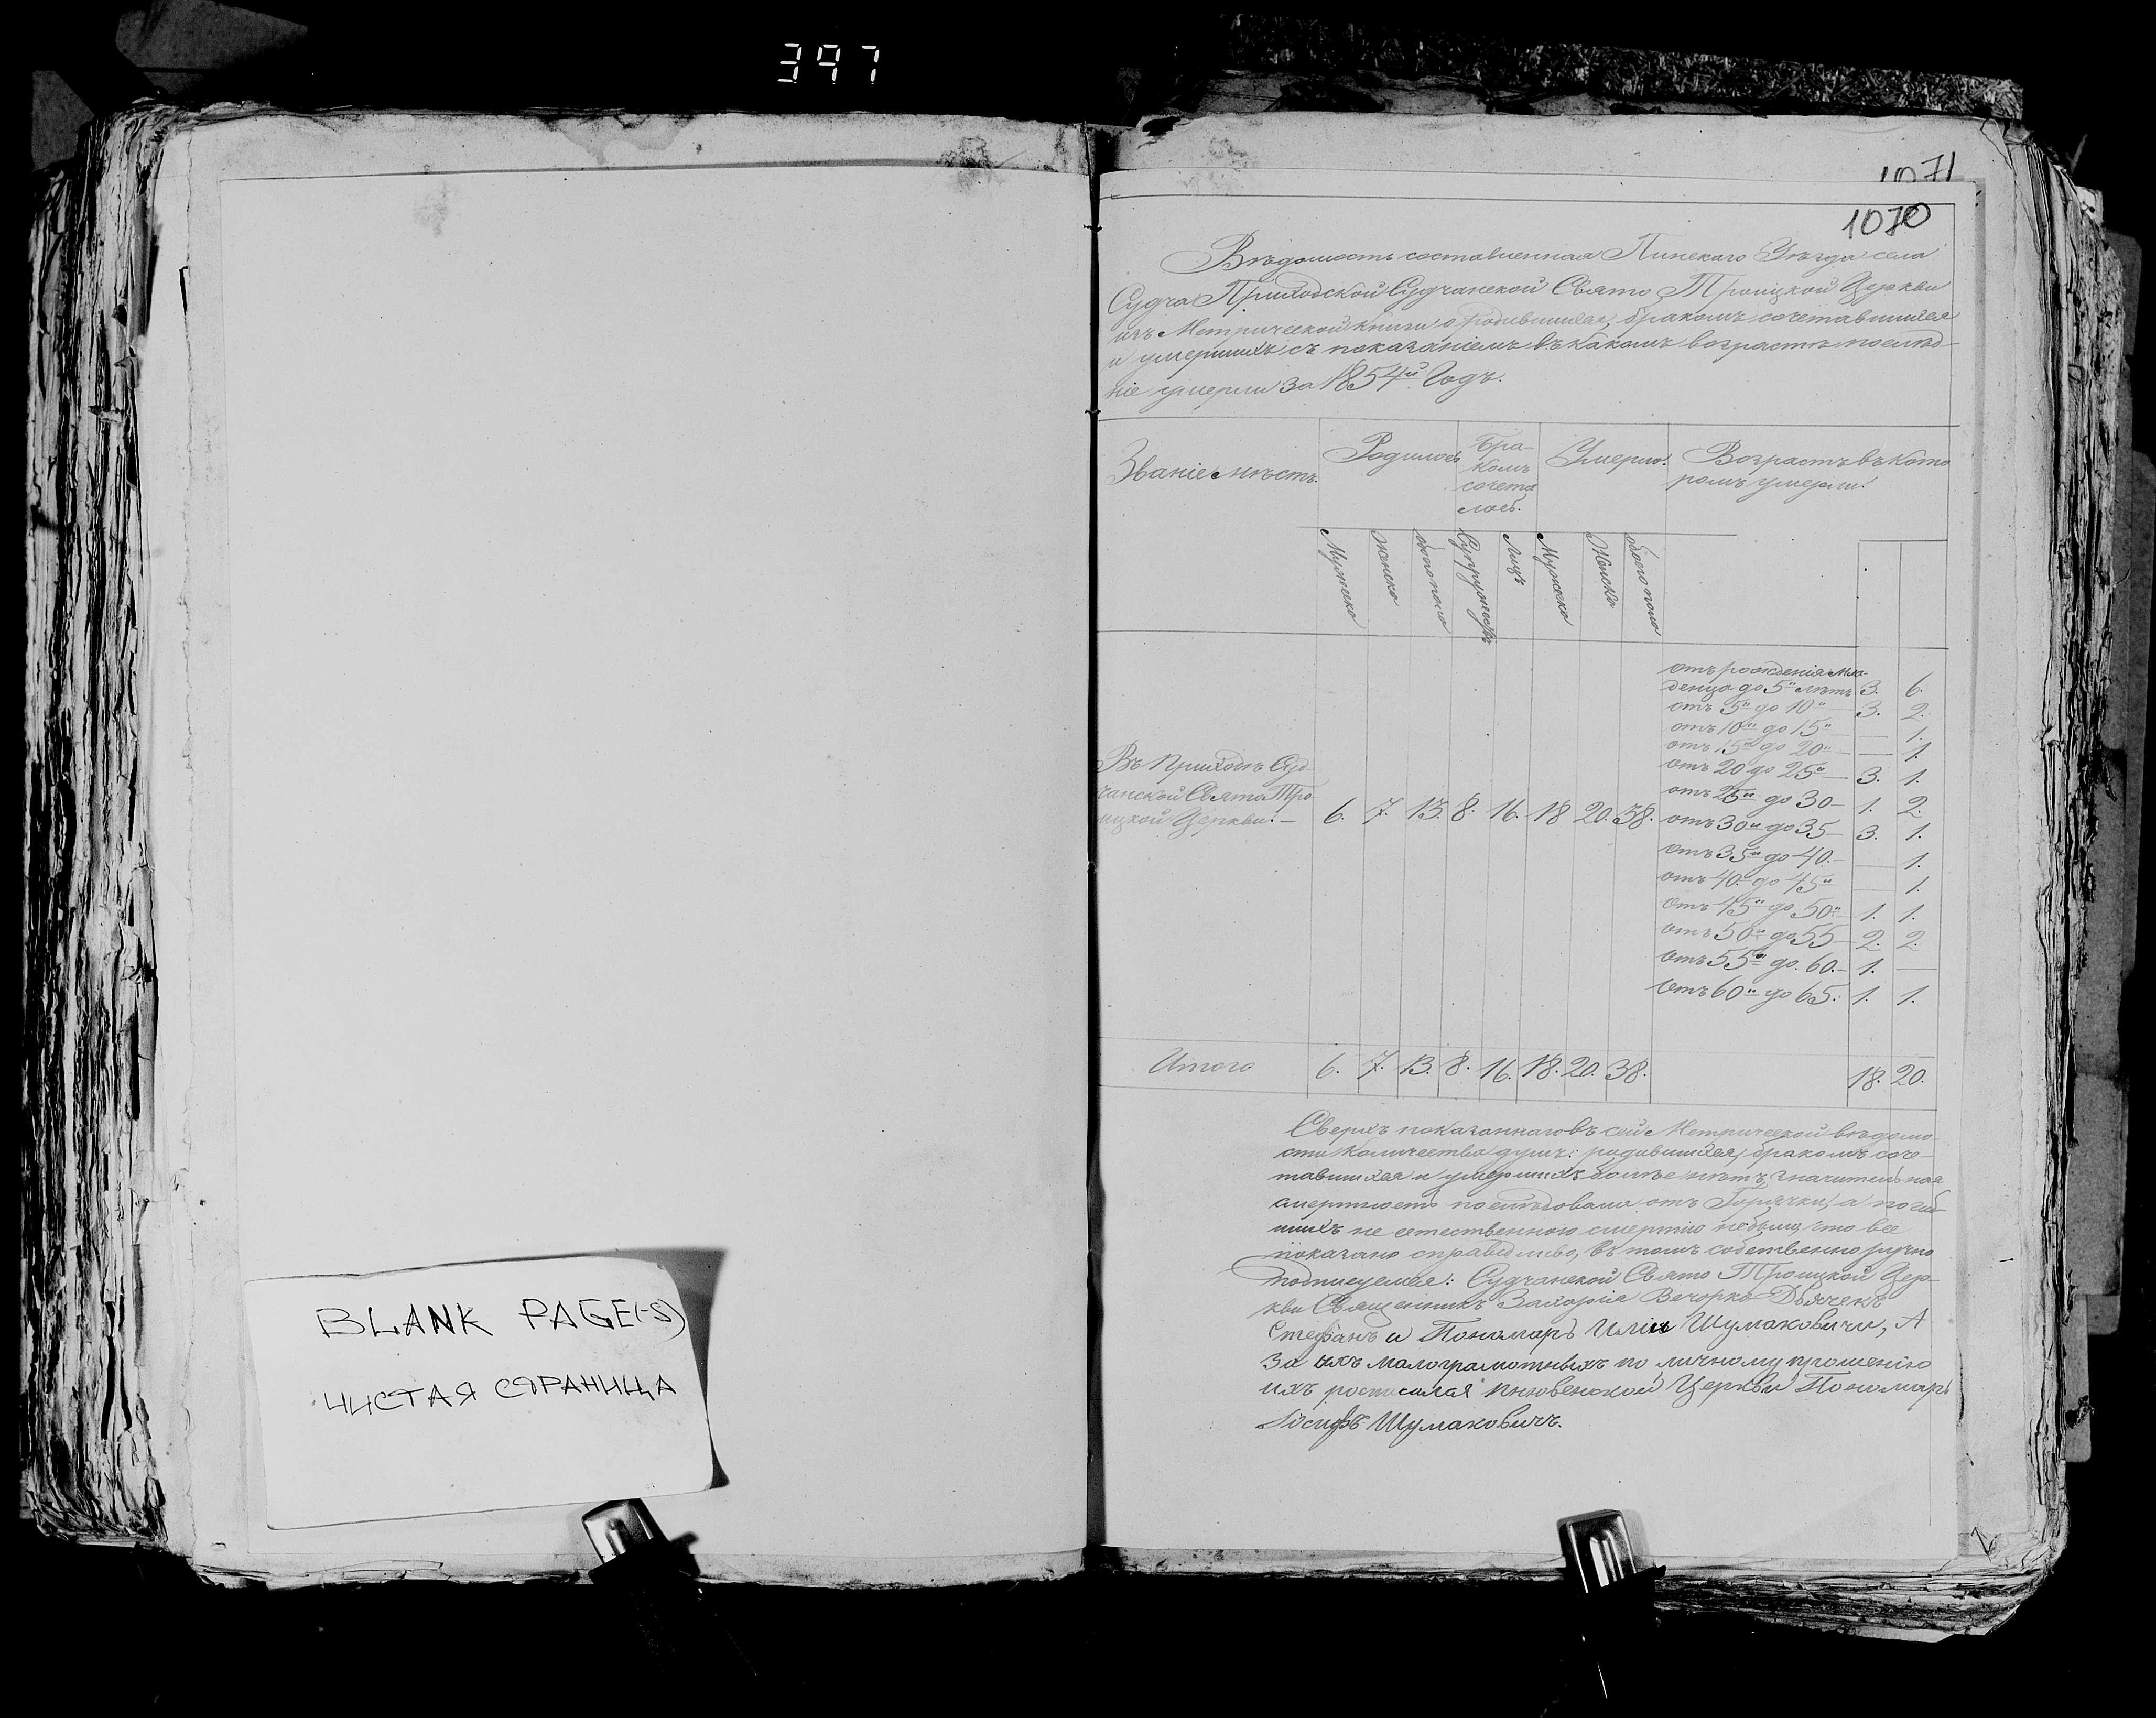 397
BLANK PAGE(-S)
ЧИСТАЯ СТРАНИЦА
1071
1070
Вѣдомость составленная Пинскаго Уѣзда села
Судча Приходской Судчанской Свято Троицкой Церкви
изъ Метрической книги о родившихся, бракомъ сочетавшихся
и умершихъ съ показаніемъ въ какомъ возрастѣ послѣд-
ніе умерли за 1854й Годъ.
Званіе мѣстъ. Родилось Бра- Умерло. Возрастъ въ кото
комъ ромъ умерли.
сочета
лось.
Мужеска Женска обоего пола Супружествъ Лицъ Мужеска Женска обоего пола
отъ рожденія мла-
денца до 5ъ лѣтъ 3. 6.
отъ 5и до 10и 3. 2.
отъ 10и до 15и — 1.
отъ 15и до 20и — 1.
отъ 20 до 25и 3. 1.
отъ 25и до 30 1. 2.
отъ 30и до 35 3. 1.
отъ 35и до 40. — 1.
отъ 40. до 45и — 1.
отъ 45и до 50и 1. 1.
отъ 50и до 55 2. 2.
отъ 55и до 60. 1. —
отъ 60и до 65. 1. 1.
Въ Приходѣ Суд-
чанской Свято Тро
ицкой Церкви. — 6. 7. 13. 8. 16. 18 20. 38.
Итого 6. 7. 13. 8. 16. 18. 20. 38. 18. 20.
Сверхъ показаннаго въ сей Метрической вѣдомо-
сти количества душъ: родившихся, бракомъ соче-
тавшихся и умершихъ болѣе нѣтъ, значительная
смертность послѣдовала отъ Горячки, а погиб-
шихъ не естественною смертію небыло, что все
показано справедливо, въ томъ собственно ручно
подписуемся: Судчанской Свято Троицкой Цер-
кви Священникъ Захарія Вечорко Дьячекъ
Стефанъ и Пономарь Илія Шумаковичи, А
За ихъ малограмотныхъ по личному прошенію
ихъ росписался Пнювенской Церкви Пономарь
Іосифъ Шумаковичъ.